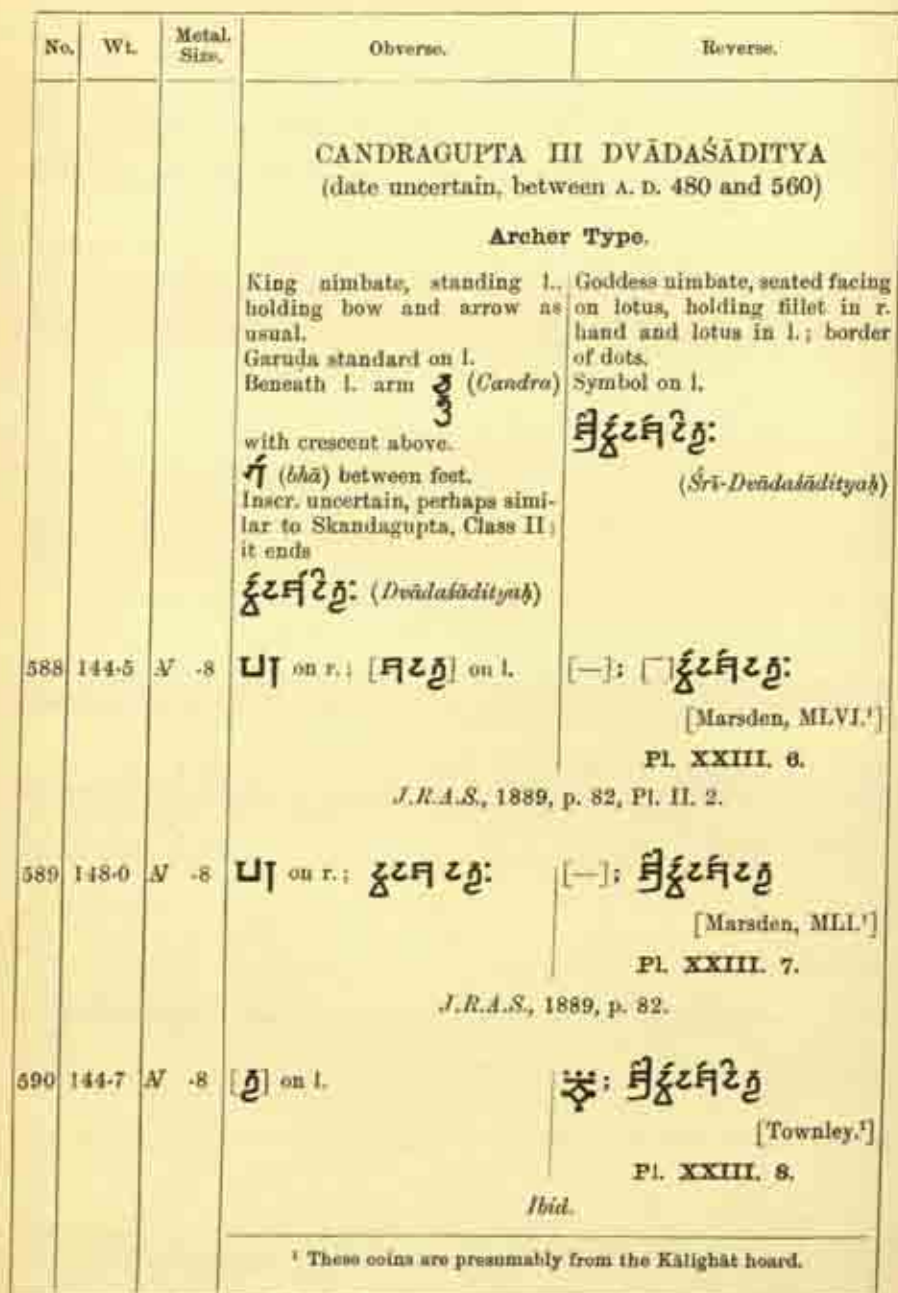 No. Wt. Metal. Size. Obverse. Reverse.
CANDRAGUPTA III DVĀDAŚĀDITYA
(date uncertain, between A. D. 480 and 560)
Archer Type.
King nimbate, standing l.,
holding bow and arrow as
usual.
Garuḍa standard on l.
Beneath l. arm (Candra)
with crescent above.
(bhā) between feet.
Inscr. uncertain, perhaps simi-
lar to Skandagupta, Class II;
it ends
(Dvādaśādityaḥ)
Goddess nimbate, seated facing
on lotus, holding fillet in r.
hand and lotus in l.; border
of dots.
Symbol on l.
(Śrī-Dvādaśādityaḥ)
588 144·5 N ·8 on r.; [ ] on l. [—];
[Marsden, MLVI.¹]
Pl. XXIII. 6.
J.R.A.S., 1889, p. 82, Pl. II. 2.
589 148·0 N ·8 on r.; [—];
[Marsden, MLI.¹]
Pl. XXIII. 7.
J.R.A.S., 1889, p. 82.
590 144·7 N ·8 [ ] on l.
[Townley.¹]
Pl. XXIII. 8.
Ibid.
¹ These coins are presumably from the Kālīghāt hoard.